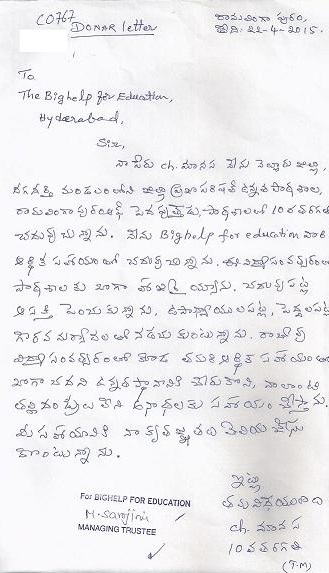 C0767
DONAR letter
రామలింగా పురం,
తేది: 22-4-2015.
To
The Bighelp for Education,
Hyderabad,
Sir,
నా పేరు ch. మానస నేను నెల్లూరు జిల్లా,
మండలంలోని జిల్లా ప్రజా పరిషత్ ఉన్నత పాఠశాల,
పాఠశాలలో 10 వతరగతి
చదువు చున్నాను. నేను Bighelp for education వారి
ఆర్థిక సహాయంతో చదువు చున్నాను. ఈ విద్యా సంవత్సరంలో
పాఠశాలకు బాగా
ఆసక్తి పెంచుకున్నాను, ఉపాధ్యాయులపట్ల, పెద్దలపట్ల
గౌరవ మర్యాదలతో నడచు కుంటున్నాను. రాబోవు
విద్యా సంవత్సరంలో కూడ తమరి ఆర్థిక సహాయంతో
బాగా చదివి ఉన్నత స్థానానికి చేరుకొని, నాలాంటి
తల్లి దండ్రులు లేని అనాధలకు సహాయం చేస్తాను.
మీ సహాయానికి నా కృతజ్ఞతలు తెలియ చేసు
కొంటున్నాను.
ఇట్లు
తమ విధేయురాలు
ch. మానస
10 వతరగతి
(T.M)
For BIGHELP FOR EDUCATION
M. Sarojini
MANAGING TRUSTEE